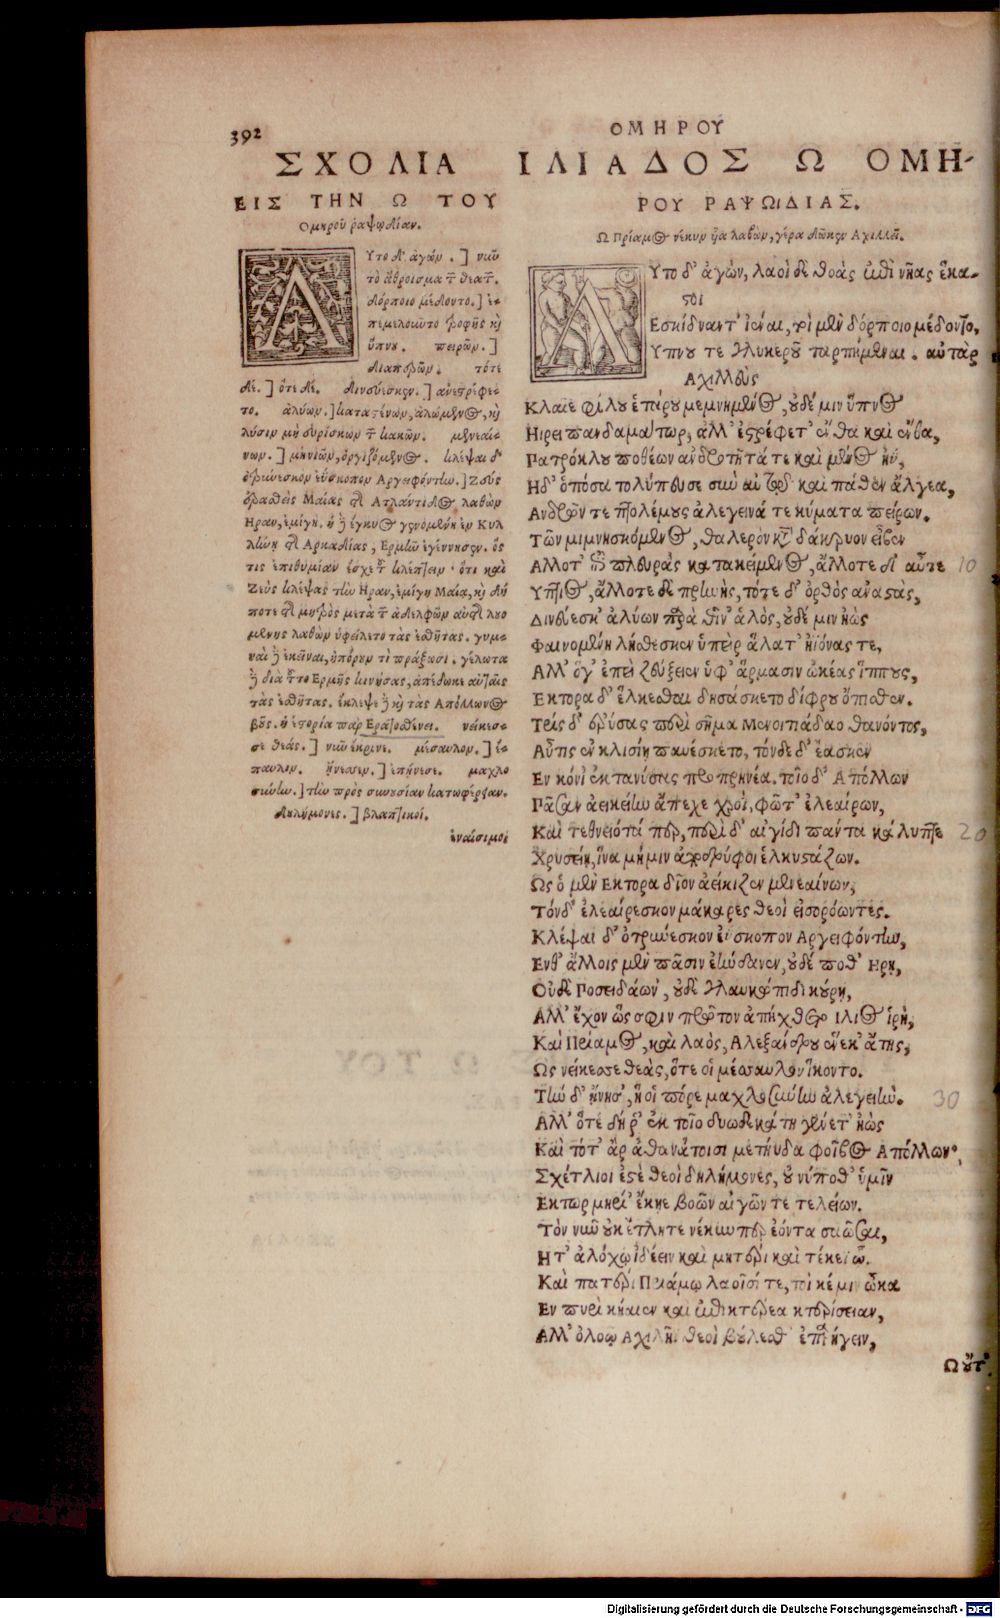 392
ΟΜΗΡΟΥ
ΣΧΟΛΙΑ
ΕΙΣ ΤΗΝ Ω ΤΟΥ
Ομηροῦ ῥαψῳδίαν.
Υτο δ' ἀγών . ] νιῦ
τὸ ἄθροισμα τ̃ θεατ̃.
δόρποιο μέδοντο. ] ἐ-
πεμελοιῶτο τροφῆς κὴ
ὕπνυ. πειρῶν. ]
διαπερῶν. τότε
δέ. ] ὁτὲ δέ. δινεύεσκεν. ] ἀνεστρέφε-
το. ἀλύων. ] κατα στένων, ἀλώμενος, κὴ
λύσιν μὴ εὑρίσκων τ̃ κακῶν. μενεαί-
νων. ] μηνιῶν, ὀργιζόμενος. κλέψαι δ'
ὀτρύνεσκον ἐύσκοπον Αργειφόντίω. ] Ζεὺς
ἐραθεὶς Μαίας τῆς Ατλάντιδος λαβὼν
Ηραν, ἐμίγη. ἡ ἢ ἔγκυος γενομένη ἐν Κυλ
λήνῃ τῆς Αρκαδίας, Ερμίω ἐγέννησεν. ὅς
τις ἐπιθυμίαν ἔσχε τοῦ κλέπτειν · ὅτι καὶ
Ζεὺς κλέψας τίω Ηραν, ἐμίγη Μαίᾳ, κὴ δή
ποτε τῆς μητρὸς μετὰ τ̃ ἀδελφῶν αὐτῆς λουο
μένης λαβὼν ὑφείλετο τὰς ἐσθῆτας. γυμ-
ναὶ ἢ ἐκεῖναι, ἠπόρουν τὶ πράξωσι. γέλωτα
ἢ διὰ τοῦτο Ερμῆς κινήσας, ἀπέδωκε αὐταῖς
τὰς ἐσθῆτας. ἔκλεψε ἢ κὴ τὰς Απόλλωνος
βοῦς. ἡ ἱστορία παρ' Ερατοσθένει. νείκεσ-
σε θεάς. ] νιῦ ἔκρινε. μέσαυλον. ] ἔ-
παυλον. ᾔνεσεν. ] ἐπῄνεσε. μαχλο
σύνίω. ] τίω πρὸς συνουσίαν κατωφέρειαν.
Δηλήμονες. ] βλαπτικοί.
ἐναίσιμοι
ΙΛΙΑΔΟΣ Ω ΟΜΗ-
ΡΟΥ ΡΑΨΩΙΔΙΑΣ.
Ω Πρίαμος νέκυν ᾗα λαβὼν, γέρα δῶκεν Αχιλλεῖ.
Υτο δ' ἀγὼν, λαοὶ δὲ θοὰς ἐπὶ νῆας ἕκα-
στοι
Εσκίδναντ' ἰέναι, τοὶ μὲν δόρποιο μέδοντο,
Υπνου τε γλυκεροῦ ταρπήμεναι. αὐτὰρ
Αχιλλεὺς
Κλαῖε φίλου ἑτάρου μεμνημένος, οὐδέ μιν ὕπνος
Ηιρει πανδαμάτωρ, ἀλλ' ἐστρέφετ' ἔνθα καὶ ἔνθα,
Πατρόκλου ποθέων ἀνδροτῆτά τε καὶ μένος ἠΰ,
Ηδ' ὁπόσα τολύπευσε σιὼ αὐτῷ καὶ πάθεν ἄλγεα,
Ανδρῶν τε πτολέμους ἀλεγεινά τε κύματα πείρων.
Τῶν μιμνησκόμενος, θαλερὸν κτ̃ δάκρυον εἶβεν
Αλλοτ' ἐπὶ πλευρὰς κατακείμενος, ἄλλοτε δ' αὖτε 10
Υπτιος, ἄλλοτε δὲ πρηνὴς, τότε δ' ὀρθὸς ἀναστὰς,
Δινεύεσκ' ἀλύων παρὰ θῖν' ἁλὸς, οὐδέ μιν ἠὼς
Φαινομένη λήθεσκεν ὑπεὶρ ἅλατ' ἠϊόνας τε,
Αλλ' ὅγ' ἐπεὶ ζεύξειεν ὑφ' ἅρμασιν ὠκέας ἵππους,
Εκτορα δ' ἕλκεσθαι δησάσκετο δίφρου ὄπισθεν.
Τρὶς δ' ἐρύσας περὶ σῆμα Μενοιτιάδαο θανόντος,
Αὖτις ἐν κλισίῃ παυέσκετο, τόνδε δ' ἔασκεν
Εν κόνι ἐκτανύσας προπρηνέα. τοῖο δ' Απόλλων
Πᾶσαν ἀεικείίω ἄπεχε χροῒ, φῶτ' ἐλεαίρων,
Καὶ τεθνειότα περ, περὶ δ' αἰγίδι πάντα κάλυπτε 20
Χρυσείῃ, ἵνα μή μιν ἀποδρύφοι ἑλκυστάζων.
Ως ὁ μὲν Εκτορα δῖον ἀείκιζεν μενεαίνων,
Τόνδ' ἐλεαίρεσκον μάκαρες θεοὶ εἰσορόωντες.
Κλέψαι δ' ὀτρύνεσκον ἐΰσκοπον Αργειφόντίω,
Ενθ' ἄλλοις μὲν πᾶσιν ἑίωδανεν, οὐδέ ποθ' Ηρῃ,
Οὐδὲ Ποσειδάων', οὐδὲ γλαυκώπιδι κούρῃ,
Αλλ' ἔχον ὥς σφιν πρῶτον ἀπήχθετο ΙΛΙΟς ἱρὴ,
Καὶ Πρίαμος, καὶ λαὸς, Αλεξάνδρου ἕνεκ' ἄτης,
Ος νείκεσσε θεὰς, ὅτε οἱ μέσσαυλον ἵκοντο.
Τίω δ' ᾔνησ', ἥ οἱ πόρε μαχλοσύνίω ἀλεγεινίω. 30
Αλλ' ὅτε δή ῥ' ἐκ τοῖο δυωδεκάτη γένετ' ἠὼς
Καὶ τότ' ἂρ ἀθανάτοισι μετηύδα φοῖβος Απόλλων·
Σχέτλιοι ἐστὲ θεοὶ δηλήμονες, οὔ νύ ποθ' ὑμῖν
Εκτωρ μηρί' ἔκηε βοῶν αἰγῶν τε τελείων.
Τὸν νιῦ οὐκ ἔτλητε νέκυν περ ἐόντα σαῶσαι,
Ητ' ἀλόχῳ ἰδέειν καὶ μητέρι καὶ τέκεϊ ᾧ.
Καὶ πατέρι Πριάμῳ λαοῖσί τε, τοί κέ μιν ὦκα
Εν πυρὶ κήαιεν καὶ ἐπὶ κτέρεα κτερίσειαν,
Αλλ' ὀλοῷ Αχιλῆϊ θεοὶ βούλεσθ' ἐπαρήγειν,
Ω οὔτ'
Digitalisierung gefördert durch die Deutsche Forschungsgemeinschaft - DFG